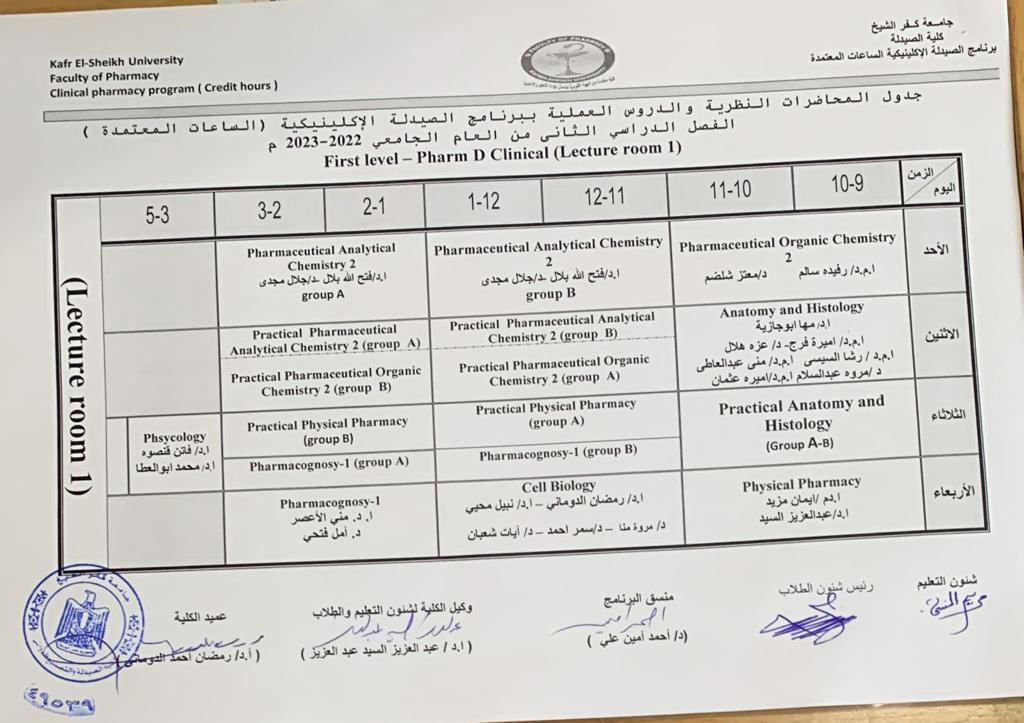 Kafr El-Sheikh University
Faculty of Pharmacy
Clinical pharmacy program ( Credit hours )
FACULTY OF PHARMACY
جامعة كفر الشيخ
كلية الصيدلة
برنامج الصيدلة الإكلينيكية الساعات المعتمدة
جدول المحاضرات النظرية والدروس العملية ببرنامج الصيدلة الإكلينيكية (الساعات المعتمدة )
الفصل الدراسي الثانى من العام الجامعي 2022-2023 م
First level – Pharm D Clinical (Lecture room 1)
(Lecture room 1)
الزمن
اليوم
10-9
11-10
12-11
1-12
2-1
3-2
5-3
الأحد
Pharmaceutical Organic Chemistry
2
ا.م.د/ رفيده سالم د/معتز شلضم
Pharmaceutical Analytical Chemistry
2
ا.د/فتح الله بلال –د/جلال مجدى
group B
Pharmaceutical Analytical
Chemistry 2
ا.د/فتح الله بلال –د/جلال مجدى
group A
الاثنين
Anatomy and Histology
ا.د/ مها ابوجازية
ا.م.د/ اميرة فرج- د/ عزه هلال
ا.م.د / رشا السيسى ا.م.د/ منى عبدالعاطى
د /مروه عبدالسلام ا.م.د/اميره عثمان
Practical Pharmaceutical Analytical
Chemistry 2 (group B)
Practical Pharmaceutical Organic
Chemistry 2 (group A)
Practical Pharmaceutical
Analytical Chemistry 2 (group A)
Practical Pharmaceutical Organic
Chemistry 2 (group B)
الثلاثاء
Practical Anatomy and
Histology
(Group A-B)
Practical Physical Pharmacy
(group A)
Pharmacognosy-1 (group B)
Practical Physical Pharmacy
(group B)
Pharmacognosy-1 (group A)
Phsycology
ا.د/ فاتن قنصوه
ا.د/ محمد ابوالعطا
الأربعاء
Physical Pharmacy
ا.دم /ايمان مزيد
ا.د/عبدالعزيز السيد
Cell Biology
ا.د/ رمضان الدوماني – ا.د/ نبيل محيي
د/ مروة منا – د/سمر احمد – د/ آيات شعبان
Pharmacognosy-1
ا. د. مني الأعصر
د. أمل فتحي
شئون التعليم
رئيس شئون الطلاب
منسق البرنامج
(د/ أحمد أمين علي )
وكيل الكلية لشئون التعليم والطلاب
( ا.د / عبد العزيز السيد عبد العزيز )
عميد الكلية
( أ.د/ رمضان أحمد الدومانى )